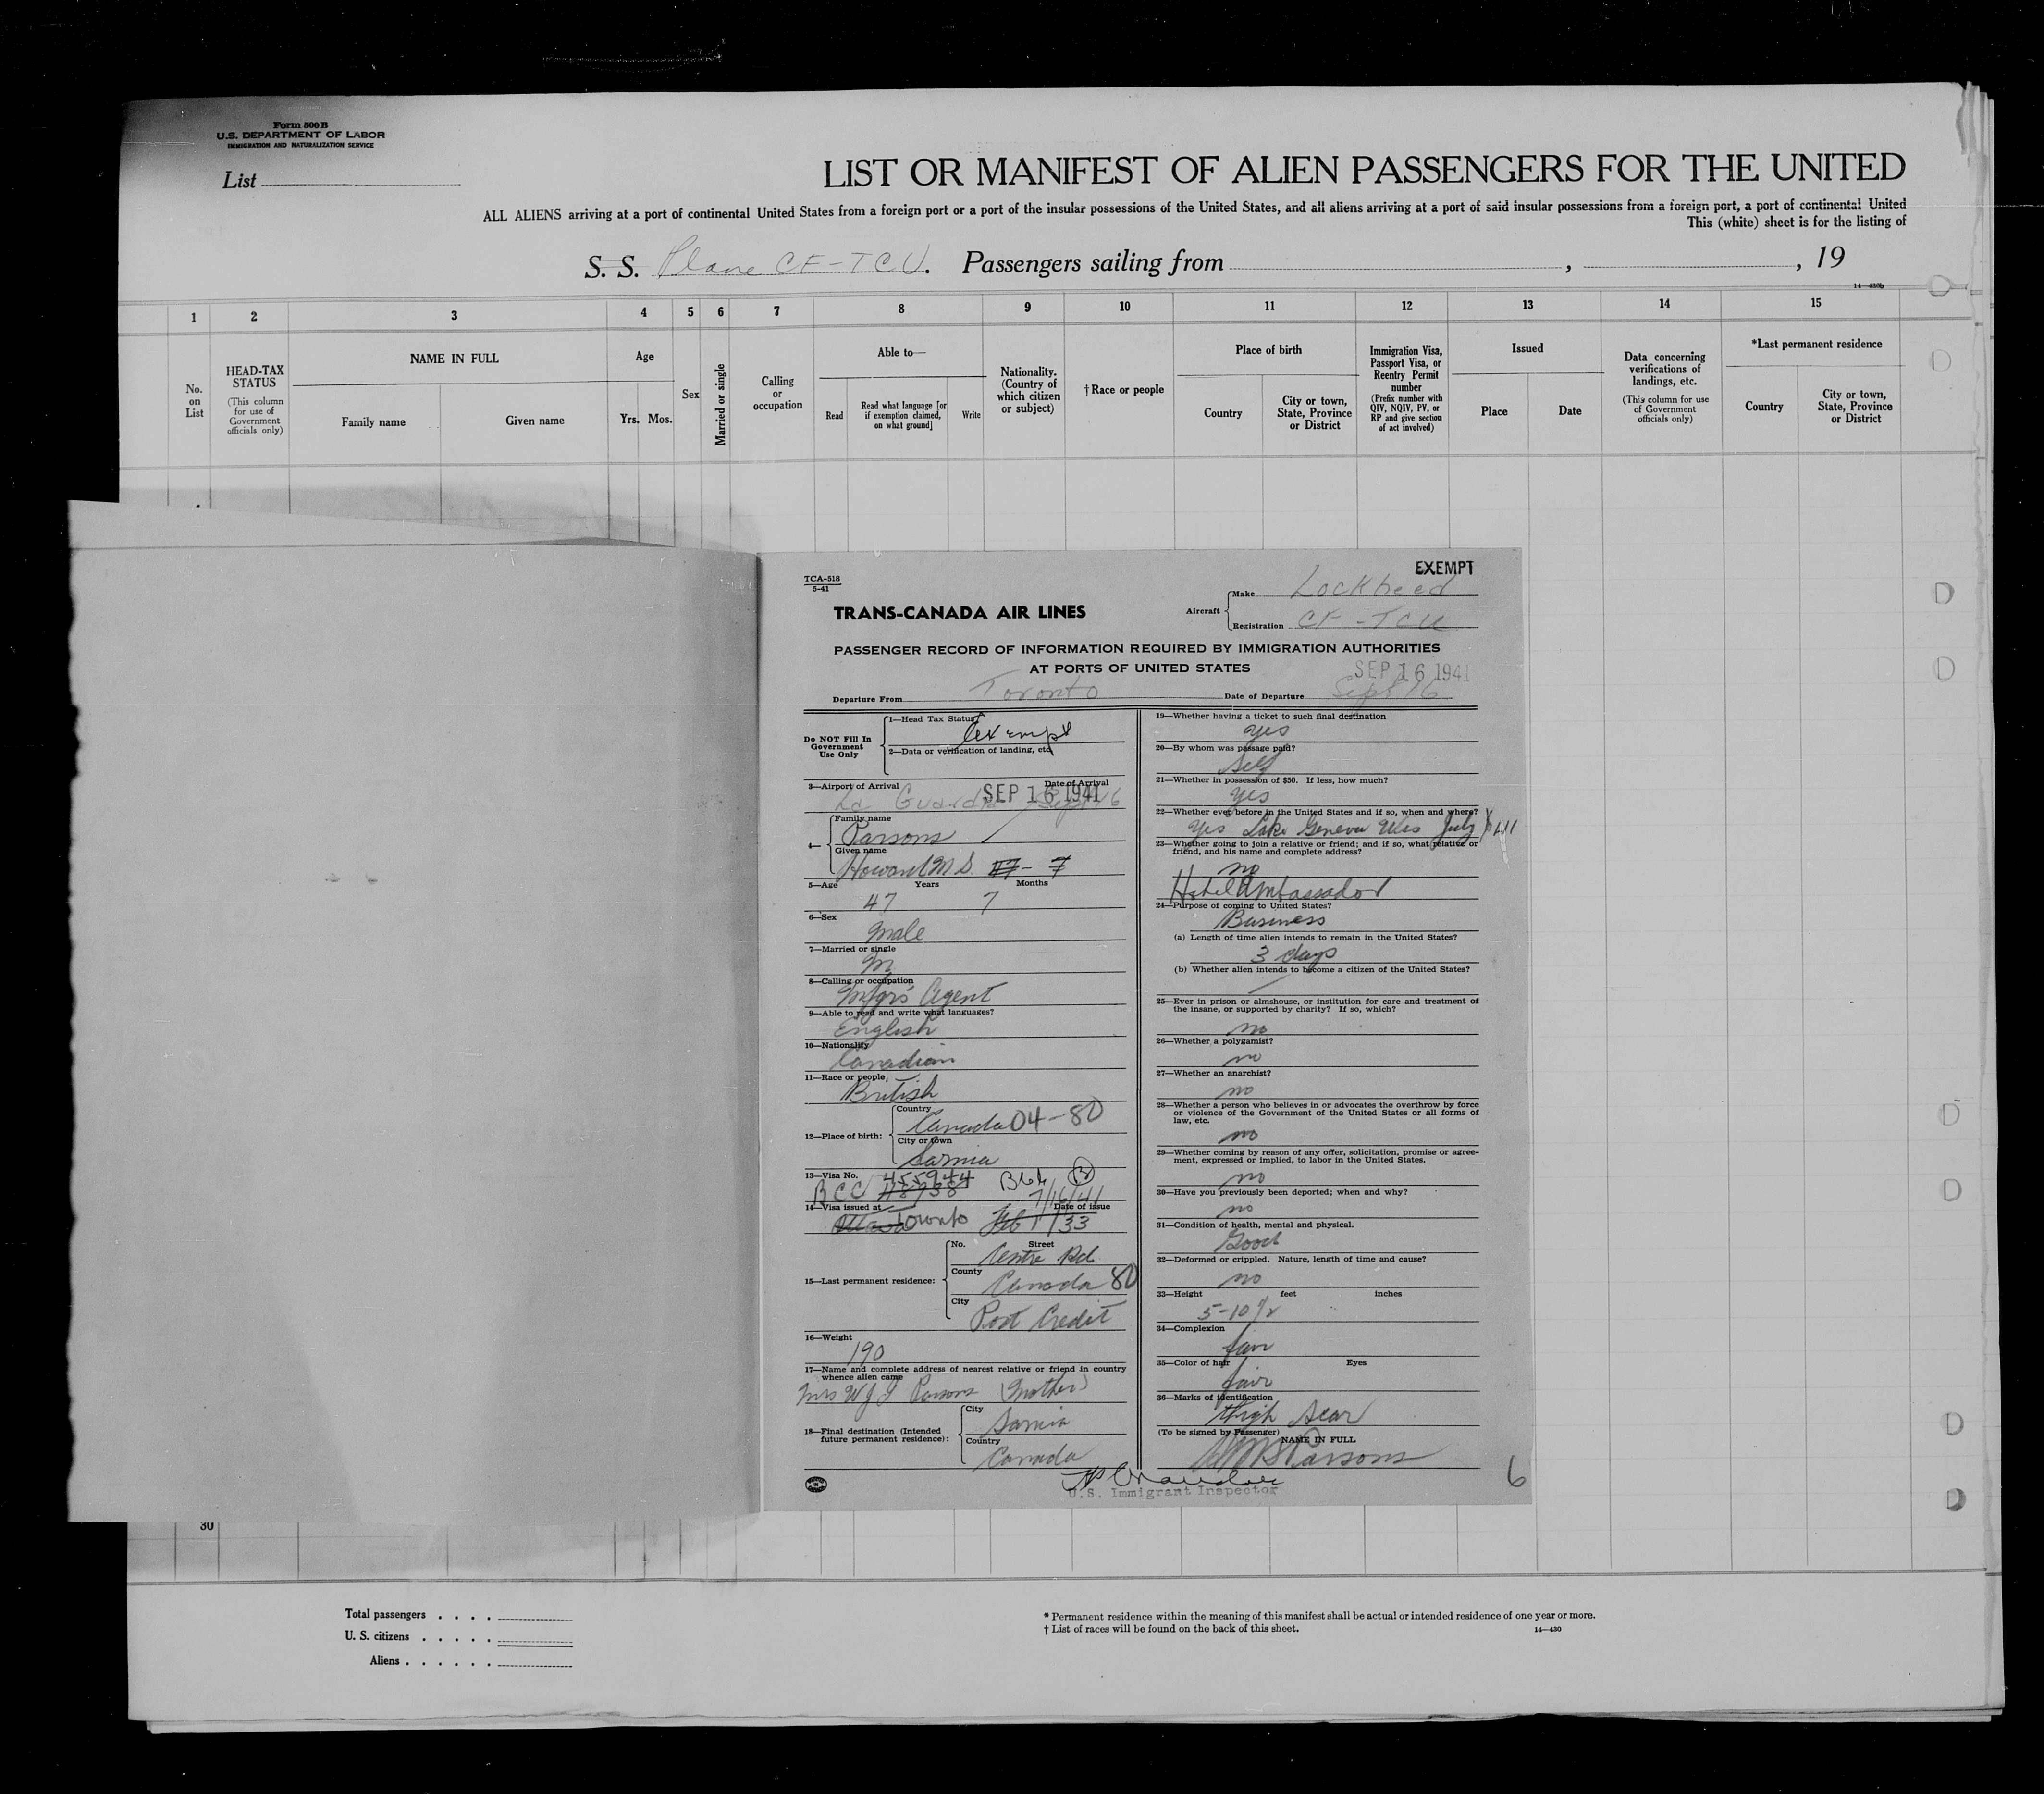 Form 500 B
U.S. DEPARTMENT OF LABOR
IMMIGRATION AND NATURALIZATION SERVICE
List
LIST OR MANIFEST OF ALIEN PASSENGERS FOR THE UNITED
ALL ALIENS arriving at a port of continental United States from a foreign port or a port of the insular possessions of the United States, and all aliens arriving at a port of said insular possessions from a foreign port, a port of continental United
This (white) sheet is for the listing of
S. S. Plane CF-TCU. Passengers sailing from , , 19
14—430b
1 2 3 4 5 6 7 8 9 10 11 12 13 14 15
No. on List
HEAD-TAX STATUS
(This column for use of Government officials only)
NAME IN FULL
Family name Given name
Age
Yrs. Mos.
Sex
Married or single
Calling or occupation
Able to—
Read
Read what language [or if exemption claimed, on what ground]
Write
Nationality. (Country of which citizen or subject)
†Race or people
Place of birth
Country
City or town, State, Province or District
Immigration Visa, Passport Visa, or Reentry Permit number
(Prefix number with QIV, NQIV, PV, or RP and give section of act involved)
Issued
Place Date
Data concerning verifications of landings, etc.
(This column for use of Government officials only)
*Last permanent residence
Country
City or town, State, Province or District
EXEMPT
TCA-518
5-41
TRANS-CANADA AIR LINES
Aircraft
Make Lockheed
Registration CF-TCU
PASSENGER RECORD OF INFORMATION REQUIRED BY IMMIGRATION AUTHORITIES
AT PORTS OF UNITED STATES
SEP 16 1941
Departure From Toronto Date of Departure Sept 16
Do NOT Fill In Government Use Only
1—Head Tax Status
Exempt
2—Data or verification of landing, etc.
3—Airport of Arrival Date of Arrival
La Guardia SEP 16 1941 Sept 16
4—
Family name
Parsons
Given name
Howard M S. 47 - 7
5—Age Years Months
47 7
6—Sex
Male
7—Married or single
M
8—Calling or occupation
Mfgrs Agent
9—Able to read and write what languages?
English
10—Nationality
Canadian
11—Race or people
British
12—Place of birth:
Country
Canada 04-80
City or town
Sarnia
13—Visa No. 455944
BCC
7/16/41
14—Visa issued at Date of issue
Toronto Feb 1/33
15—Last permanent residence:
No. Street
Centre Rd
County
Canada 80
City
Port Credit
16—Weight
190
17—Name and complete address of nearest relative or friend in country whence alien came
Mrs W J Parsons (Mother)
18—Final destination (Intended future permanent residence):
City
Sarnia
Country
Canada
19—Whether having a ticket to such final destination
yes
20—By whom was passage paid?
Self
21—Whether in possession of $50. If less, how much?
yes
22—Whether ever before in the United States and if so, when and where?
yes Lake Geneva Wis July
23—Whether going to join a relative or friend; and if so, what relative or friend, and his name and complete address?
no
Hotel Ambassador
24—Purpose of coming to United States?
Business
(a) Length of time alien intends to remain in the United States?
3 days
(b) Whether alien intends to become a citizen of the United States?
25—Ever in prison or almshouse, or institution for care and treatment of the insane, or supported by charity? If so, which?
no
26—Whether a polygamist?
no
27—Whether an anarchist?
no
28—Whether a person who believes in or advocates the overthrow by force or violence of the Government of the United States or all forms of law, etc.
no
29—Whether coming by reason of any offer, solicitation, promise or agreement, expressed or implied, to labor in the United States.
no
30—Have you previously been deported; when and why?
no
31—Condition of health, mental and physical.
Good
32—Deformed or crippled. Nature, length of time and cause?
no
33—Height feet inches
5-10 1/2
34—Complexion
fair
35—Color of hair Eyes
fair
36—Marks of identification
Thigh Scar
(To be signed by Passenger)
NAME IN FULL
Parsons
U.S. Immigrant Inspector
6
30
Total passengers
U. S. citizens
Aliens
* Permanent residence within the meaning of this manifest shall be actual or intended residence of one year or more.
† List of races will be found on the back of this sheet.
14—430